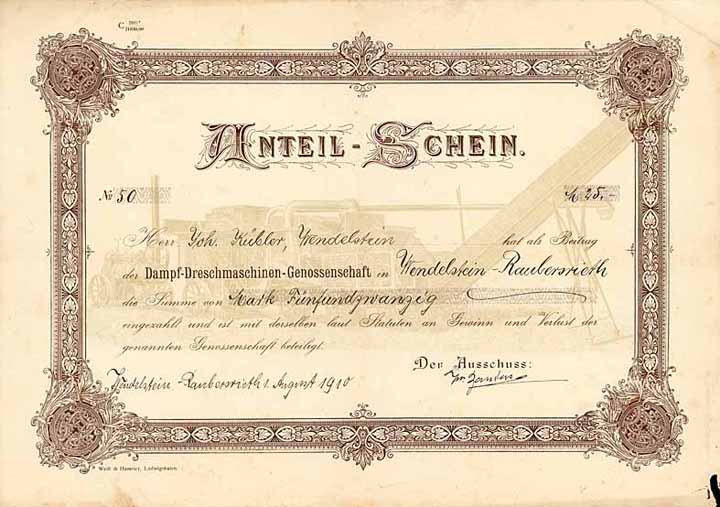 ANTEIL-SCHEIN.
№ 50 M 25.-
Herr Joh. Kübler, Wendelstein hat als Beitrag
der Dampf-Dreschmaschinen-Genossenschaft in Wendelstein-Raubersrieth
die Summe von Mark Fünfundzwanzig
eingezahlt und ist mit derselben laut Statuten an Gewinn und Verlust der
genannten Genossenschaft beteiligt.
Der Ausschuss:
Wendelstein-Raubersrieth 1. August 1910